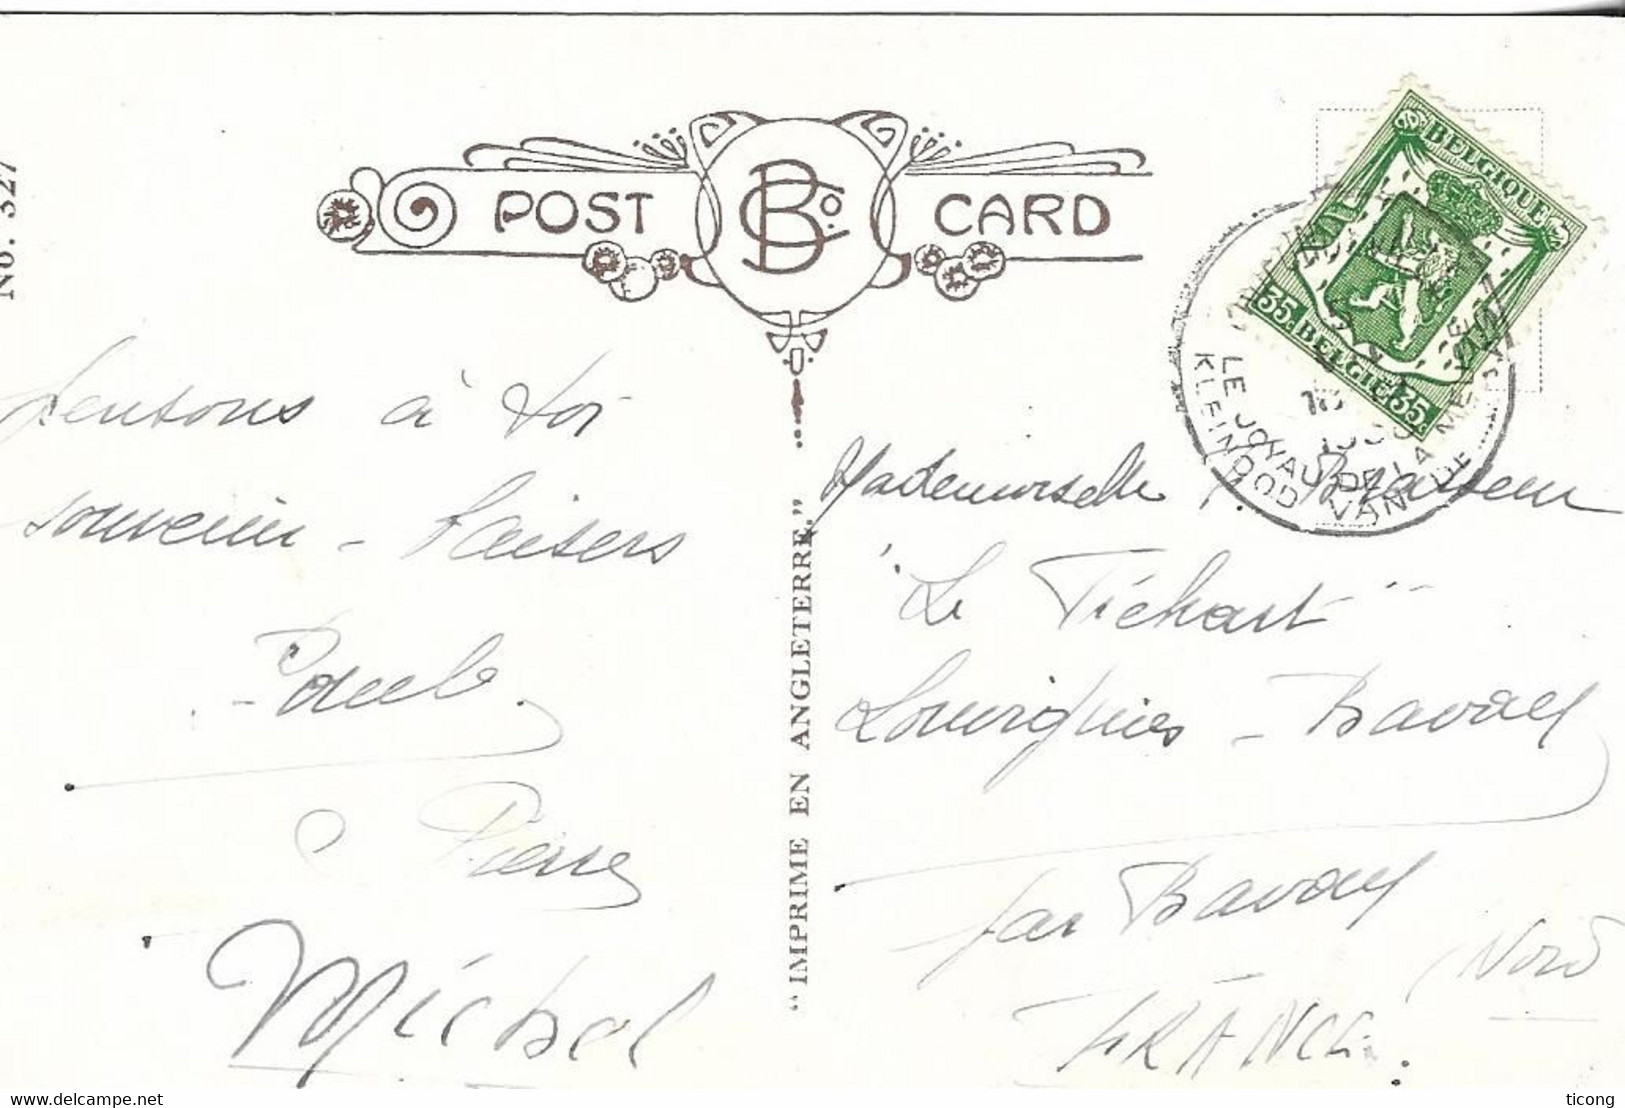 No. 327
POST CARD
B C Co.
BELGIQUE
35 c. BELGIË 35 c.
LE JOYAU DE LA MEUSE
KLEINOOD VAN DE
Pensons à toi
souvenir - Baisers
Paule
Pierre
Michel
"IMPRIME EN ANGLETERRE."
Mademoiselle Brasseur
"Le Tichout"
Louvignies - Bavay
par Bavay
(Nord
FRANCE.
www.delcampe.net
ticong